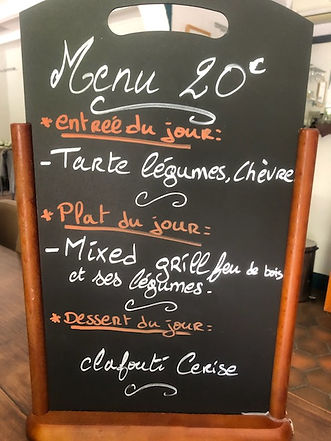 Menu 20€
* Entrée du jour:
- Tarte légumes, Chèvre
* Plat du jour:
- Mixed grill feu de bois
et ses légumes.
* Dessert du jour:
clafouti Cerise